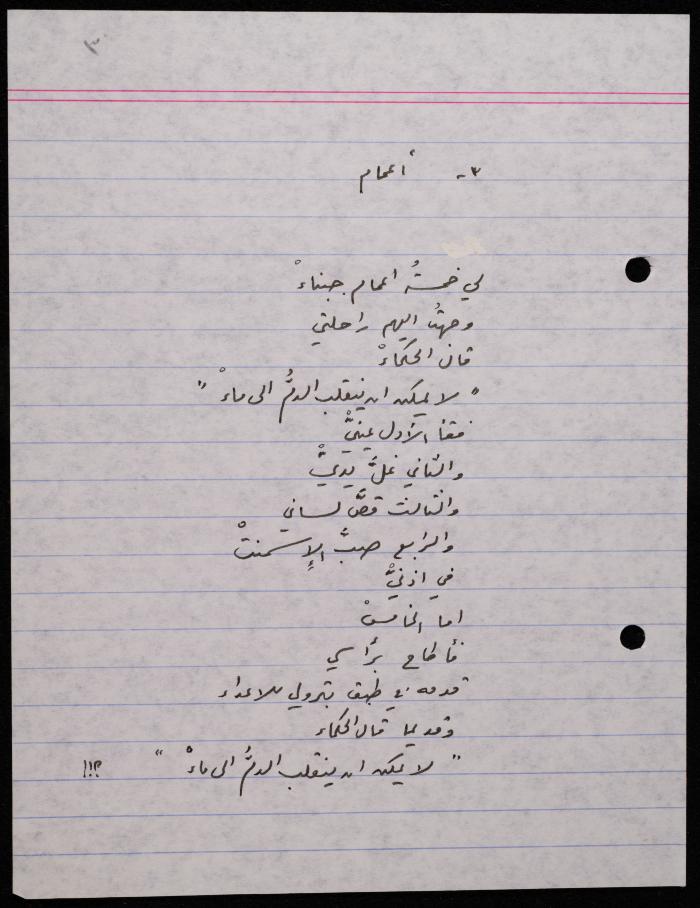 ٣
٣- أعمام
لي خمسةُ اعمام جبناءْ
وجهتُ اليهم راحلتي
قال الحكماءْ
" لا يمكن ان ينقلب الدمُّ الى ماءْ "
ففقأ الأول عينيَّ
والثاني غلَّ يديَّ
والثالث قصَّ لساني
والرابع صبَّ الإسمنتْ
في اذنيَّ
اما الخامسْ
فأطاح برأسي
قدمه في طبق بترولي للاعداء
وقديما قال الحكماء
" لا يمكن ان ينقلب الدمُّ الى ماءْ " ؟!!